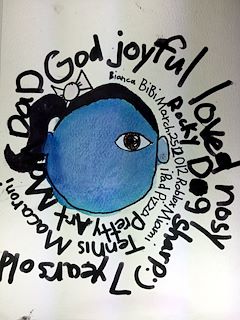 DaD God joyful loved nosy sharp:) 7 years old
Rocky Dog
Tennis Macaroni
Bianca BiBi March,25,2012 Roblox Miami
iPad Pizza Pretty Art